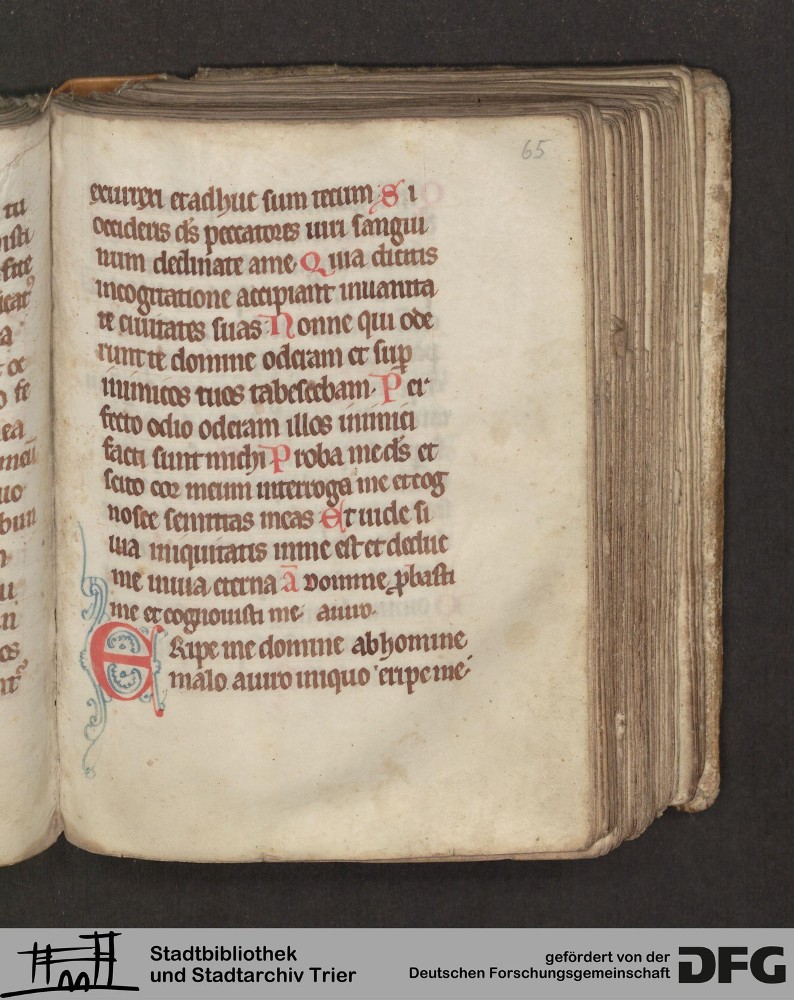 65
exurrexi et adhuc sum tecum Si
occideris ds peccatores uiri sangui
num declinate a me Quia dicitis
in cogitatione accipiant in uanita
te ciuitates suas Nonne qui ode
runt te domine oderam et sup
inimicos tuos tabescebam. Per
fecto odio oderam illos inimici
facti sunt michi Proba me ds et
scito cor meum interroga me et cog
nosce semitas meas Et uide si
uia iniquitatis in me est et deduc
me in uia eterna a Domine pbasti
me et cognouisti me. a uiro.
ERipe me domine ab homine
malo. a uiro iniquo eripe me.
tu
isti
a
o fe
ea
meū
uo
bun
u
n
os
Stadtbibliothek
und Stadtarchiv Trier
gefördert von der
Deutschen Forschungsgemeinschaft
DFG